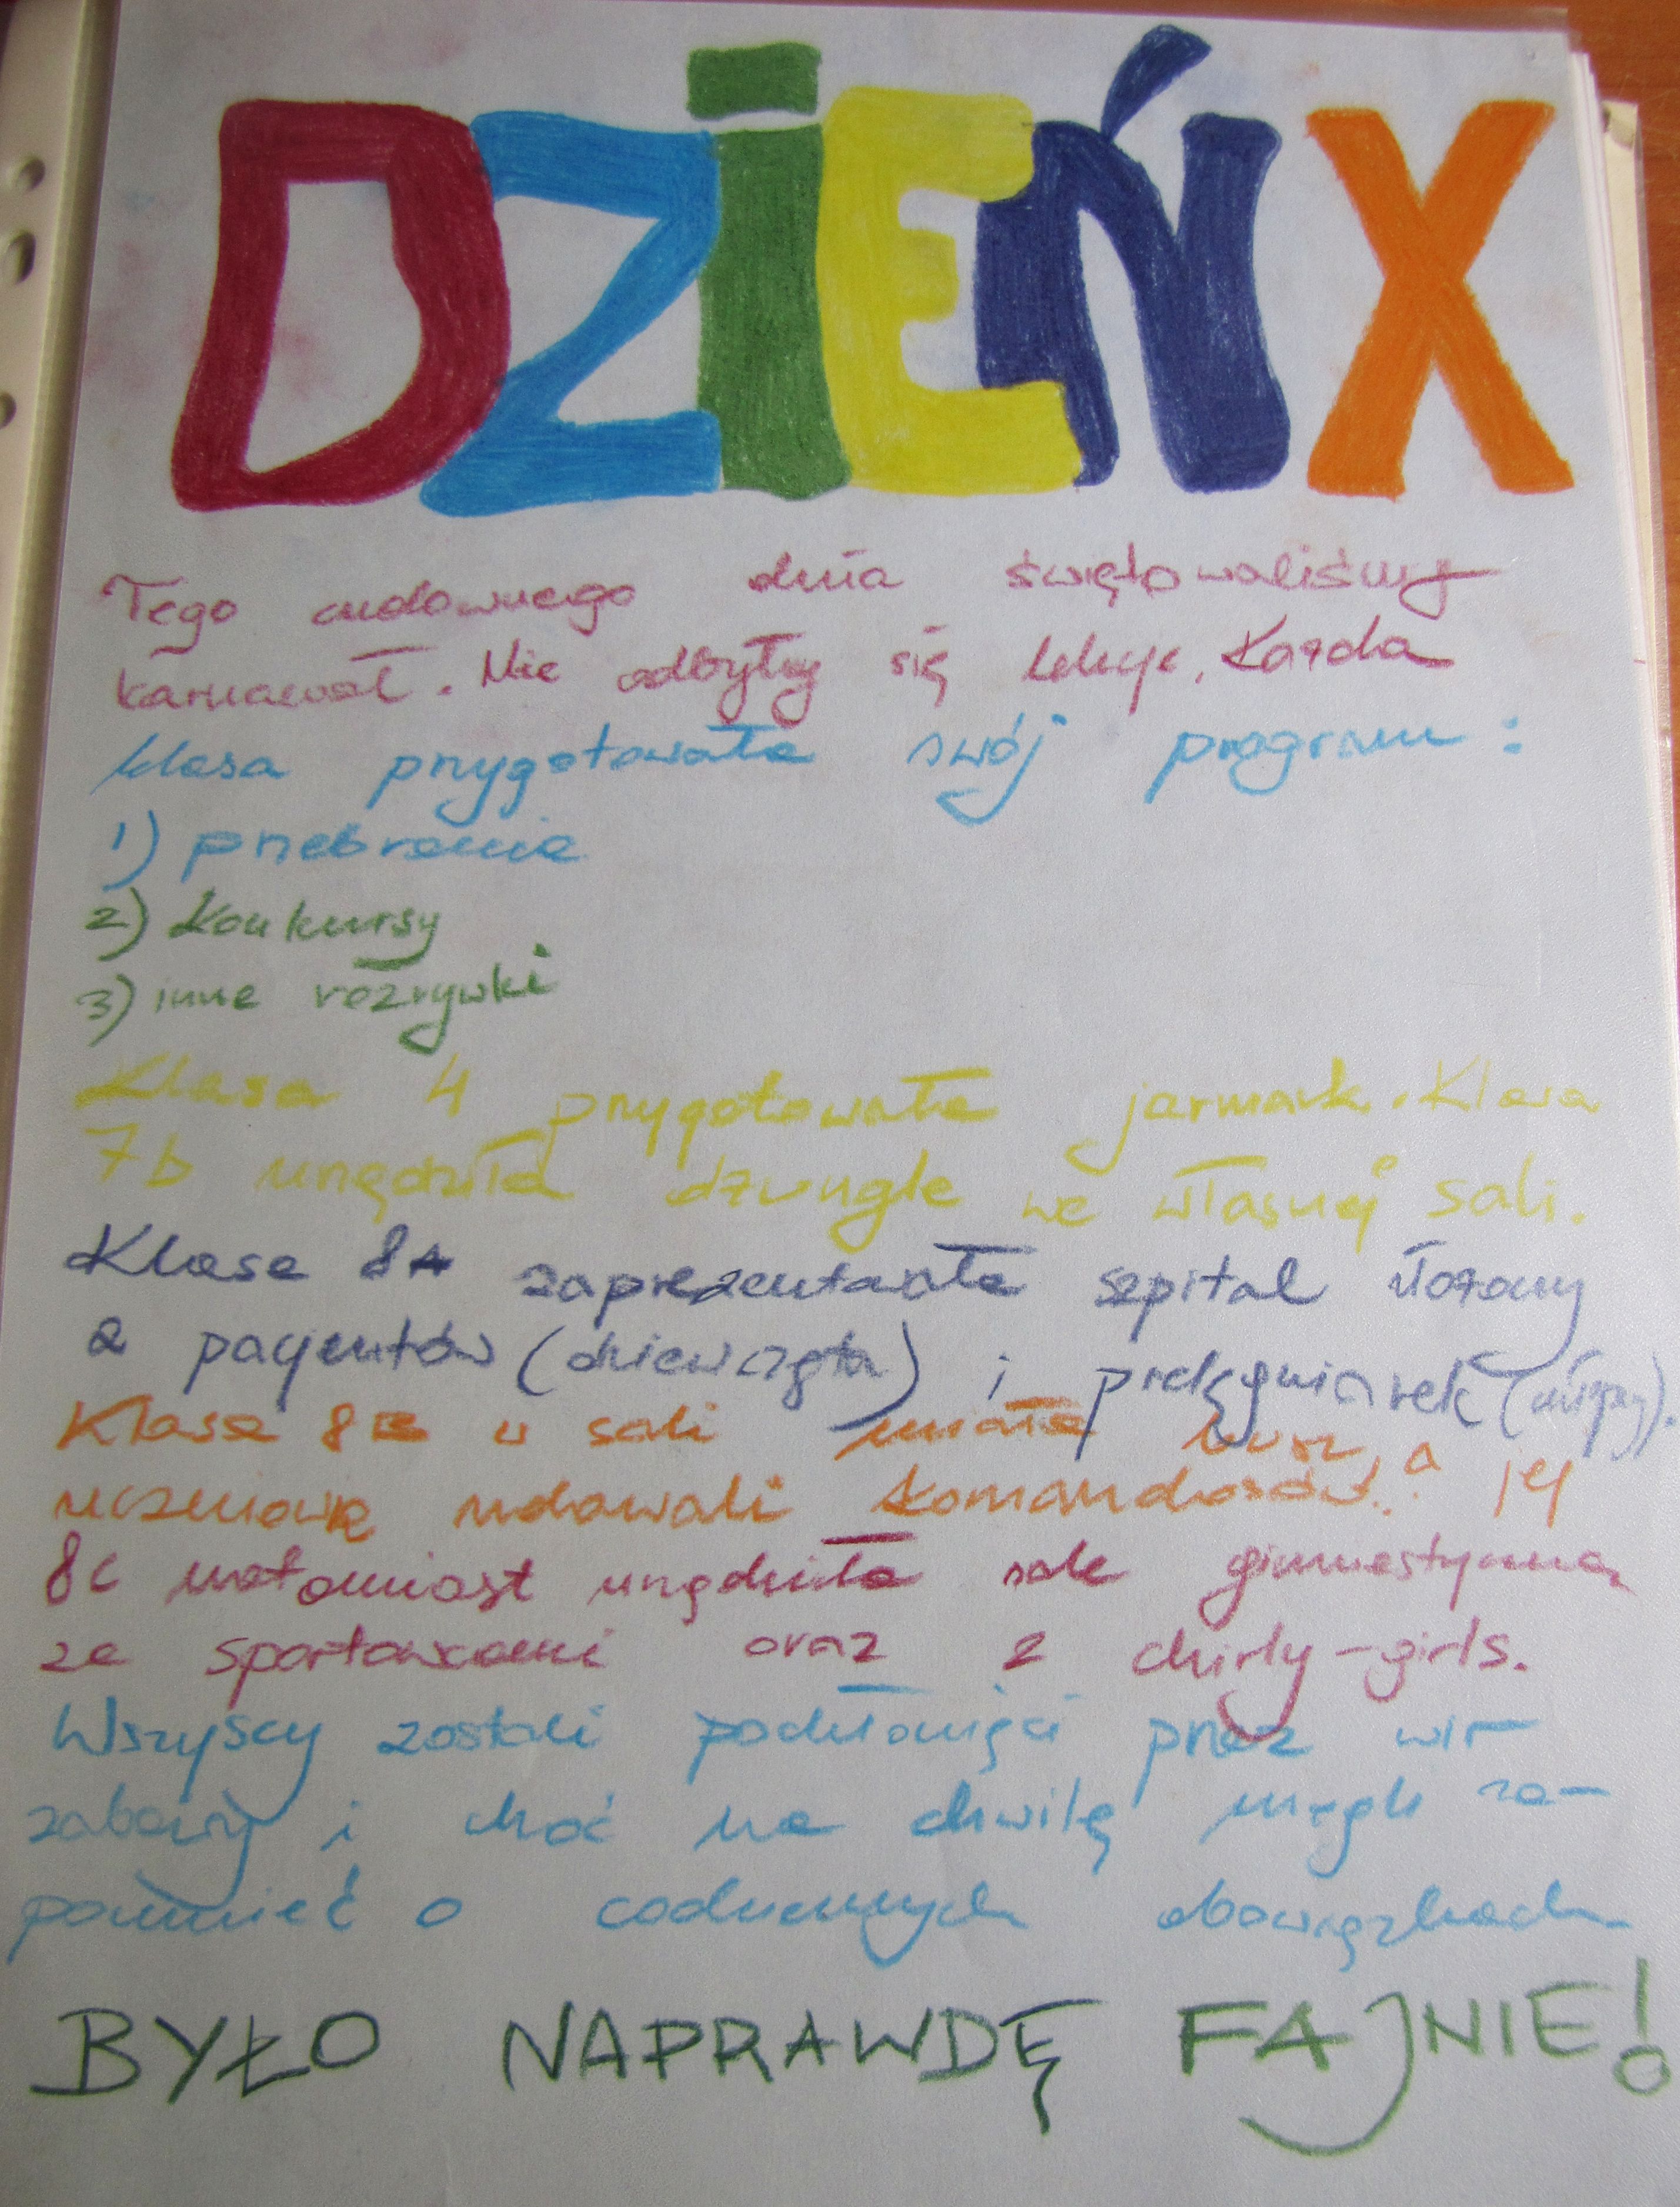 DZIEŃ X
Tego cudownego dnia świętowaliśmy
karnawał. Nie odbyły się lekcje. Każda
klasa przygotowała swój program:
1) przebrania
2) Konkursy
3) inne rozrywki
Klasa 4 przygotowała jarmark. Klasa
7b urządziła dżungle we własnej sali.
Klasa 8A zaprezentowała szpital złożony
z pacjentów (dziewczęta) i pielęgniarek (chłopcy).
Klasa 8B w sali miała busz, a jej
uczniowie udawali komandosów.
8c natomiast urządziła sale gimnastyczną
ze sportowcami oraz z chirly-girls.
Wszyscy zostali pochłonięci przez wir
zabawy i choć na chwilę mogli za-
pomnieć o codziennych obowiązkach
BYŁO NAPRAWDĘ FAJNIE!